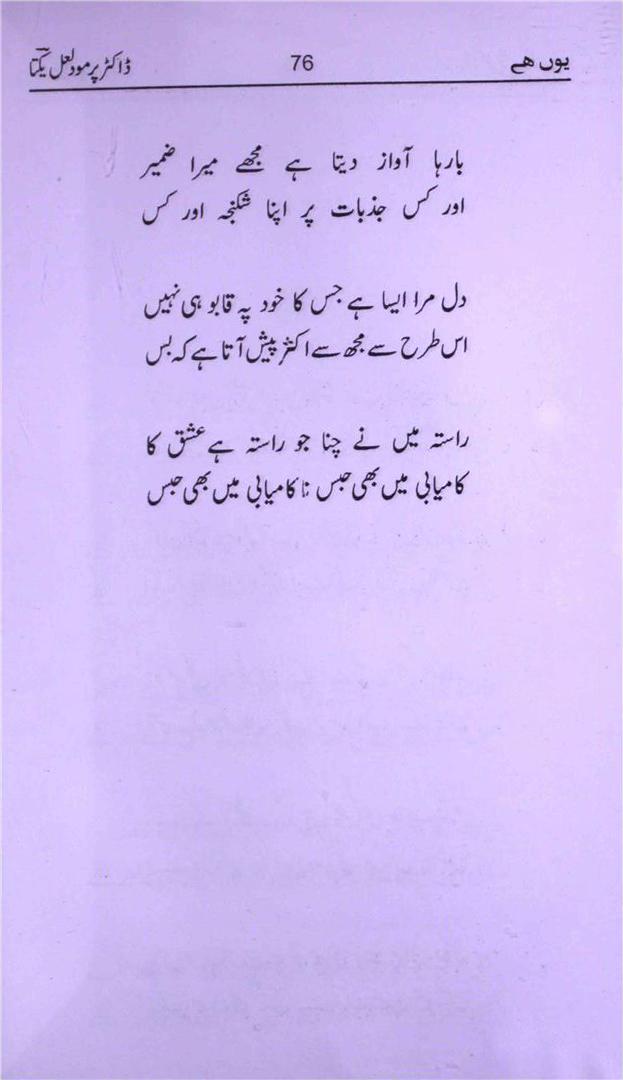 یوں ھے 76 ڈاکٹر پرمود لعل یکتا
بارہا آواز دیتا ہے مجھے میرا ضمیر
اور کس جذبات پر اپنا شکنجہ اور کس
دل مرا ایسا ہے جس کا خود پہ قابو ہی نہیں
اس طرح سے مجھ سے اکثر پیش آتا ہے کہ بس
راستہ میں نے چنا جو راستہ ہے عشق کا
کامیابی میں بھی حبس ناکامیابی میں بھی حبس